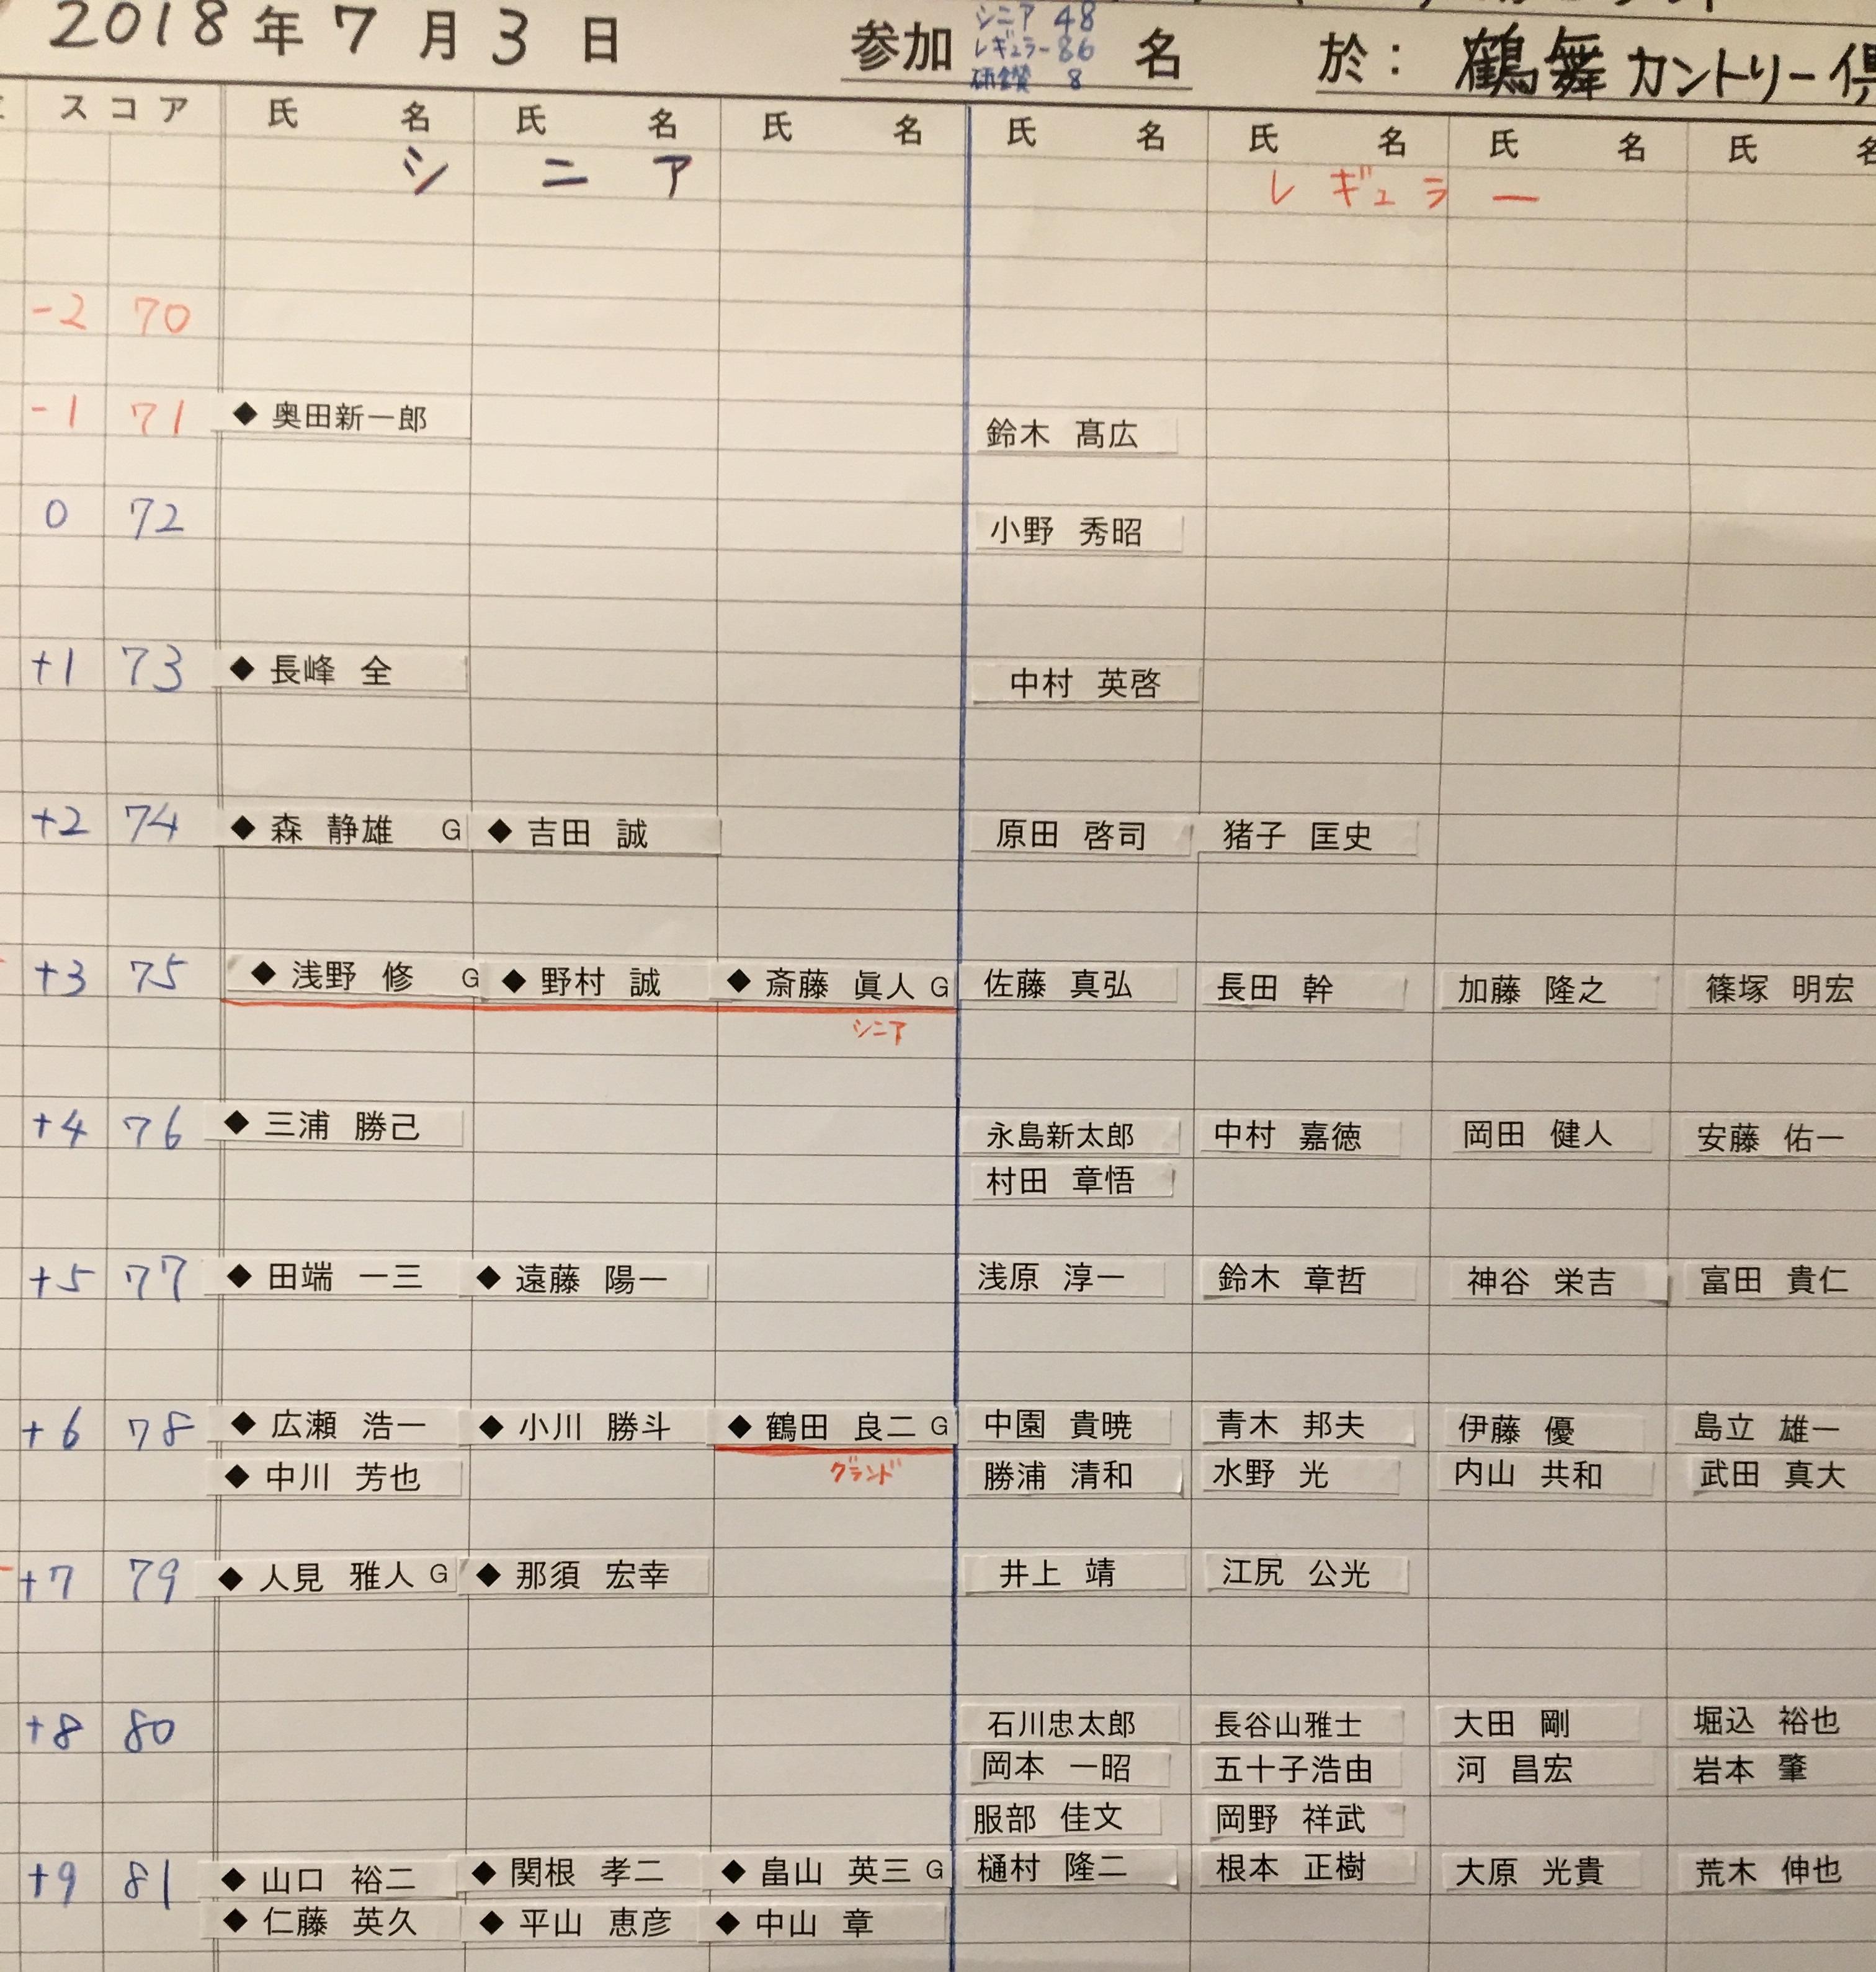 2018年7月3日 参加 シニア 48 レギュラー 86 研鑽 8 名 於：鶴舞カントリー倶
スコア 氏名 氏名 氏名 氏名 氏名 氏名 氏名
シニア レギュラー
-2 70
-1 71 ◆奥田新一郎 鈴木 髙広
0 72 小野 秀昭
+1 73 ◆長峰 全 中村 英啓
+2 74 ◆森 静雄 G ◆吉田 誠 原田 啓司 猪子 匡史
+3 75 ◆浅野 修 G ◆野村 誠 ◆斎藤 眞人 G 佐藤 真弘 長田 幹 加藤 隆之 篠塚 明宏
シニア
+4 76 ◆三浦 勝己 永島新太郎 中村 嘉徳 岡田 健人 安藤 佑一
村田 章悟
+5 77 ◆田端 一三 ◆遠藤 陽一 浅原 淳一 鈴木 章哲 神谷 栄吉 富田 貴仁
+6 78 ◆広瀬 浩一 ◆小川 勝斗 ◆鶴田 良二 G 中園 貴暁 青木 邦夫 伊藤 優 島立 雄一
グランド
◆中川 芳也 勝浦 清和 水野 光 内山 共和 武田 真大
+7 79 ◆人見 雅人 G ◆那須 宏幸 井上 靖 江尻 公光
+8 80 石川忠太郎 長谷山雅士 大田 剛 堀込 裕也
岡本 一昭 五十子浩由 河 昌宏 岩本 肇
服部 佳文 岡野 祥武
+9 81 ◆山口 裕二 ◆関根 孝二 ◆畠山 英三 G 樋村 隆二 根本 正樹 大原 光貴 荒木 伸也
◆仁藤 英久 ◆平山 恵彦 ◆中山 章